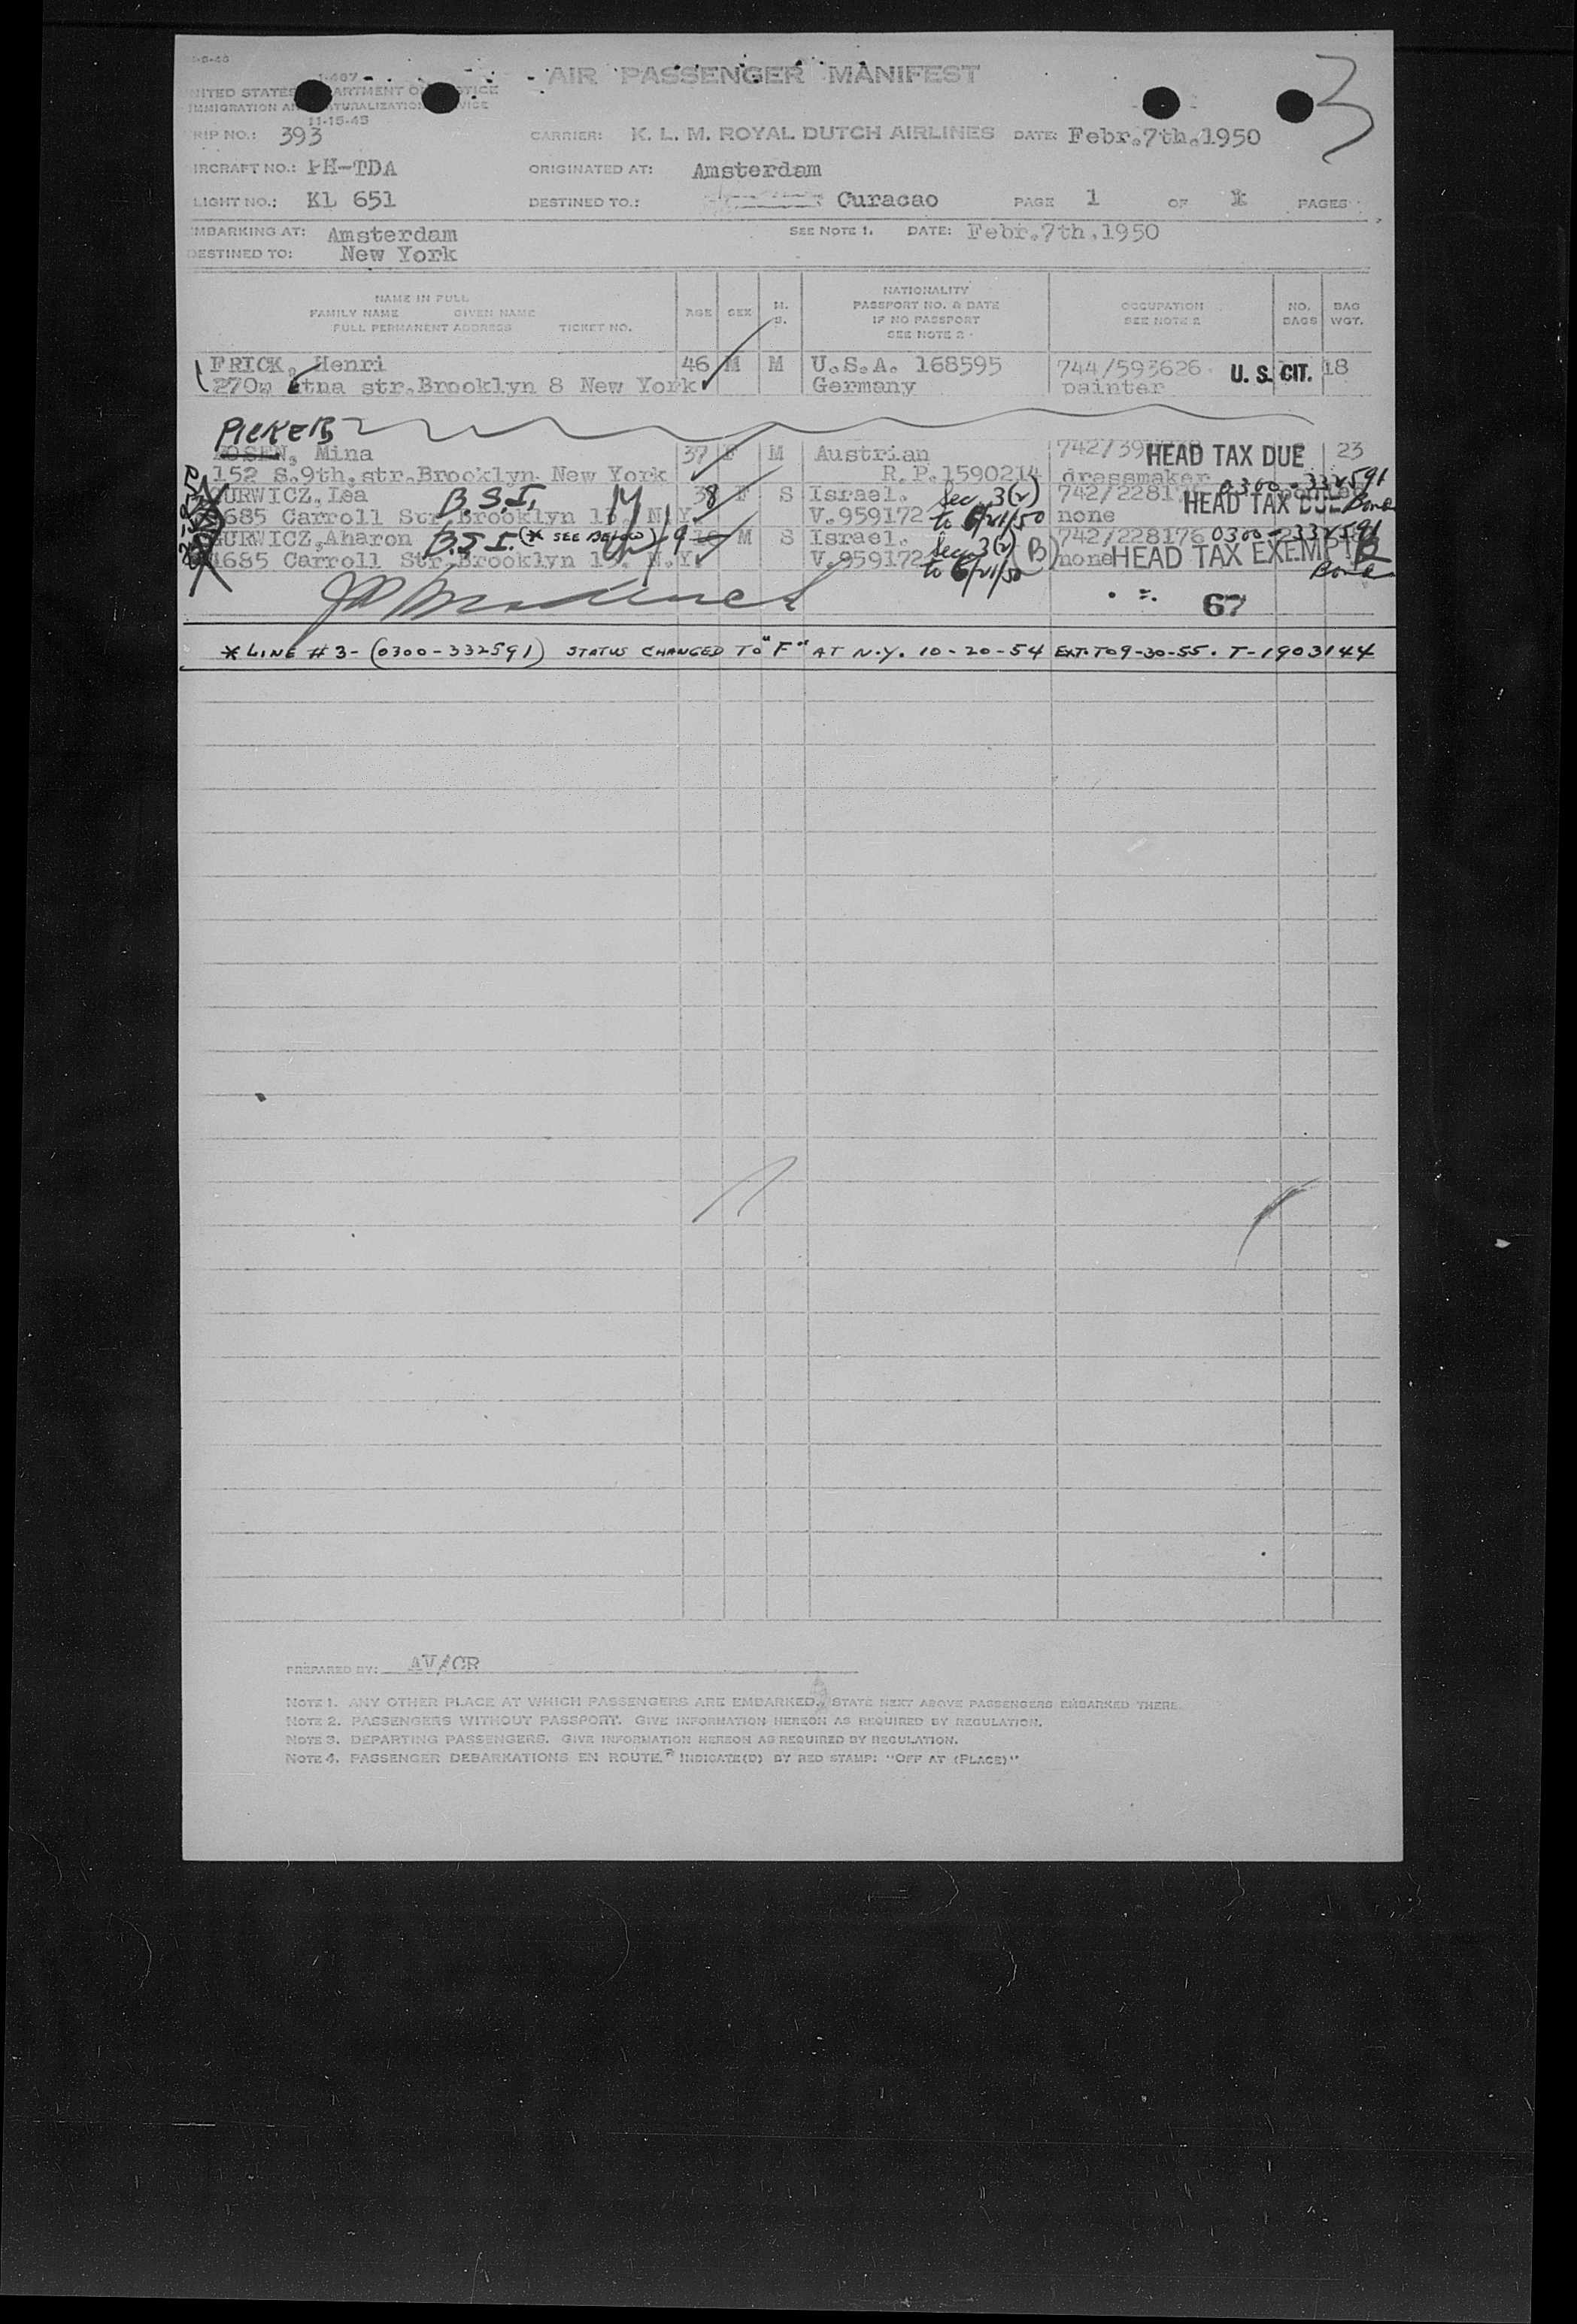 AIR PASSENGER MANIFEST
3
11-15-45
TRIP NO.: 393 CARRIER: K. L. M. ROYAL DUTCH AIRLINES DATE: Febr.7th.1950
IRCRAFT NO.: PH-TDA ORIGINATED AT: Amsterdam
LIGHT NO.: KL 651 DESTINED TO.: Curacao PAGE 1 OF 1 PAGES
MBARKING AT: Amsterdam SEE NOTE 1. DATE: Febr.7th.1950
DESTINED TO: New York
NAME IN FULL
FAMILY NAME GIVEN NAME
FULL PERMANENT ADDRESS TICKET NO.
AGE SEX M. S.
NATIONALITY
PASSPORT NO. & DATE
IF NO PASSPORT
SEE NOTE 2
OCCUPATION
SEE NOTE 2
NO. BAGS BAG WGT.
FRICK, Henri 46 M M U.S.A. 168595 744/593626 U. S. CIT. 18
str.Brooklyn 8 New York Germany painter
PICKER
Mina 37 F M Austrian HEAD TAX DUE 23
152 S.9th.str.Brooklyn New York R.P.1590214 drassmaker 0300-332591
GURWICZ, Lea B.S.I. 38 F S Israel. Sec. 3(2) HEAD TAX DUE Bond
1685 Carroll Str.Brooklyn 13. N.Y. V.959172 to 6/21/50 none
GURWICZ,Aharon B.S.I. (* SEE BELOW) 9 M S Israel. Sec 3(2) (B) 742/228176 0300-332591
1685 Carroll Str.Brooklyn 13. N.Y. V.959172 to 6/21/50 none HEAD TAX EXEMPT Bond
67
* LINE # 3- (0300-332591) STATUS CHANGED TO "F" AT N.Y. 10-20-54 EXT. TO 9-30-55. T-1903144
PREPARED BY: AV/CR
NOTE 1. ANY OTHER PLACE AT WHICH PASSENGERS ARE EMBARKED, STATE NEXT ABOVE PASSENGERS EMBARKED THERE.
NOTE 2. PASSENGERS WITHOUT PASSPORT. GIVE INFORMATION HEREON AS REQUIRED BY REGULATION.
NOTE 3. DEPARTING PASSENGERS. GIVE INFORMATION HEREON AS REQUIRED BY REGULATION.
NOTE 4. PASSENGER DEBARKATIONS EN ROUTE. INDICATE(D) BY RED STAMP: "OFF AT (PLACE)"